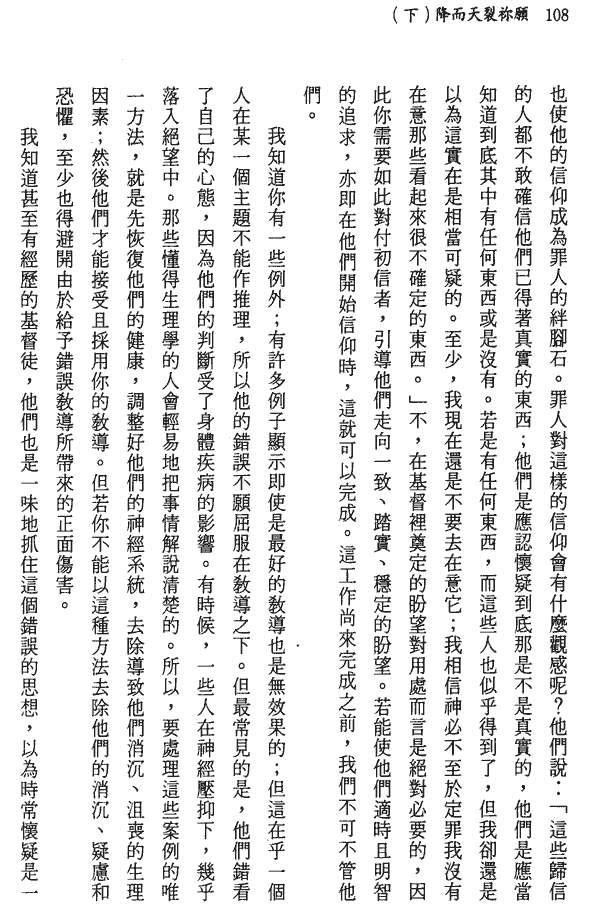 108 願祢裂天而降（下）
也使他的信仰成為罪人的絆腳石。罪人對這樣的信仰會有什麼觀感呢？他們說：「這些歸信
的人都不敢確信他們已得著真實的東西；他們是應認懷疑到底那是不是真實的，他們是應當
知道到底其中有任何東西或是沒有。若是有任何東西，而這些人也似乎得到了，但我卻還是
以為這實在是相當可疑的。至少，我現在還是不要去在意它；我相信神必不至於定罪我沒有
在意那些看起來很不確定的東西。」不，在基督裡奠定的盼望對用處而言是絕對必要的，因
此你需要如此對付初信者，引導他們走向一致、踏實、穩定的盼望。若能使他們適時且明智
的追求，亦即在他們開始信仰時，這就可以完成。這工作尚來完成之前，我們不可不管他
們。
我知道你有一些例外；有許多例子顯示即使是最好的教導也是無效果的；但這在乎一個
人在某一個主題不能作推理，所以他的錯誤不願屈服在教導之下。但最常見的是，他們錯看
了自己的心態，因為他們的判斷受了身體疾病的影響。有時候，一些人在神經壓抑下，幾乎
落入絕望中。那些懂得生理學的人會輕易地把事情解說清楚的。所以，要處理這些案例的唯
一方法，就是先恢復他們的健康，調整好他們的神經系統，去除導致他們消沉、沮喪的生理
因素；然後他們才能接受且採用你的教導。但若你不能以這種方法去除他們的消沉、疑慮和
恐懼，至少也得避開由於給予錯誤教導所帶來的正面傷害。
我知道甚至有經歷的基督徒，他們也是一味地抓住這個錯誤的思想，以為時常懷疑是一